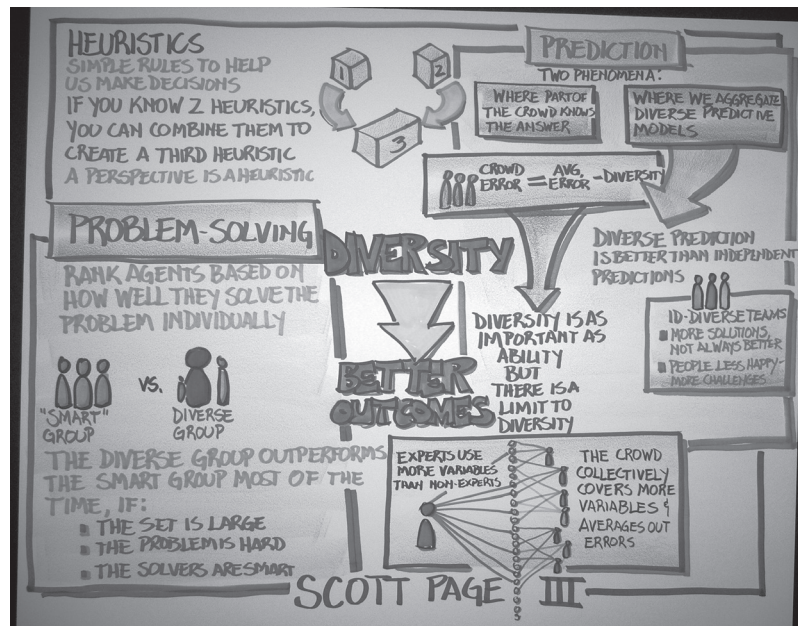 HEURISTICS
SIMPLE RULES TO HELP
US MAKE DECISIONS
IF YOU KNOW 2 HEURISTICS,
YOU CAN COMBINE THEM TO
CREATE A THIRD HEURISTIC
A PERSPECTIVE IS A HEURISTIC
1
2
3
PREDICTION
TWO PHENOMENA:
WHERE PART OF
THE CROWD KNOWS
THE ANSWER
WHERE WE AGGREGATE
DIVERSE PREDICTIVE
MODELS
CROWD
ERROR = AVG.
ERROR - DIVERSITY
DIVERSE PREDICTION
IS BETTER THAN INDEPENDENT
PREDICTIONS
ID-DIVERSE TEAMS
MORE SOLUTIONS,
NOT ALWAYS BETTER
PEOPLE LESS HAPPY-
MORE CHALLENGES
PROBLEM-SOLVING
RANK AGENTS BASED ON
HOW WELL THEY SOLVE THE
PROBLEM INDIVIDUALLY
"SMART"
GROUP
VS.
DIVERSE
GROUP
THE DIVERSE GROUP OUTPERFORMS
THE SMART GROUP MOST OF THE
TIME, IF:
THE SET IS LARGE
THE PROBLEM IS HARD
THE SOLVERS ARE SMART
DIVERSITY
BETTER
OUTCOMES
DIVERSITY IS AS
IMPORTANT AS
ABILITY
BUT
THERE IS A
LIMIT TO
DIVERSITY
EXPERTS USE
MORE VARIABLES
THAN NON-EXPERTS
THE CROWD
COLLECTIVELY
COVERS MORE
VARIABLES &
AVERAGES OUT
ERRORS
SCOTT PAGE III